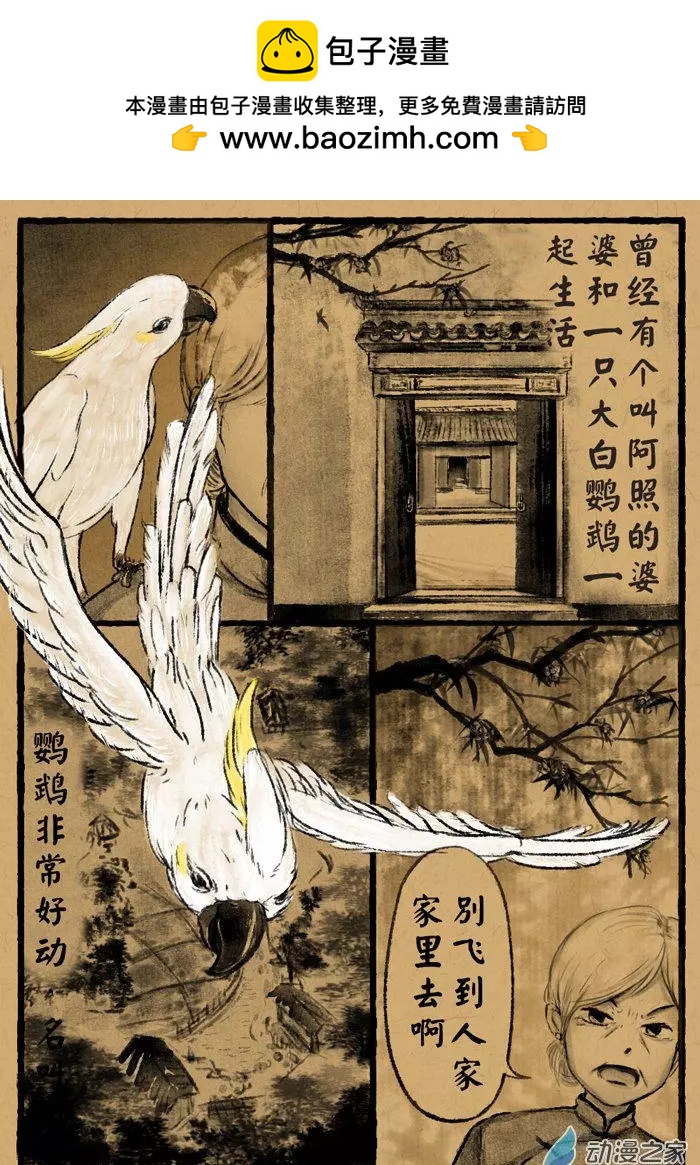 包子漫畫
本漫畫由包子漫畫收集整理，更多免費漫畫請訪問
👉 www.baozimh.com 👈
曾经有个叫阿照的婆
婆和一只大白鹦鹉一
起生活
鹦鹉非常好动，名叫
别飞到人家
家里去啊
动漫之家